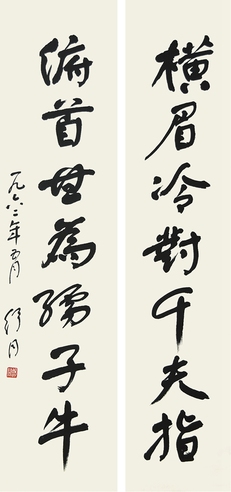 橫眉冷對千夫指
俯首甘為孺子牛
一九六二年五月 舒同